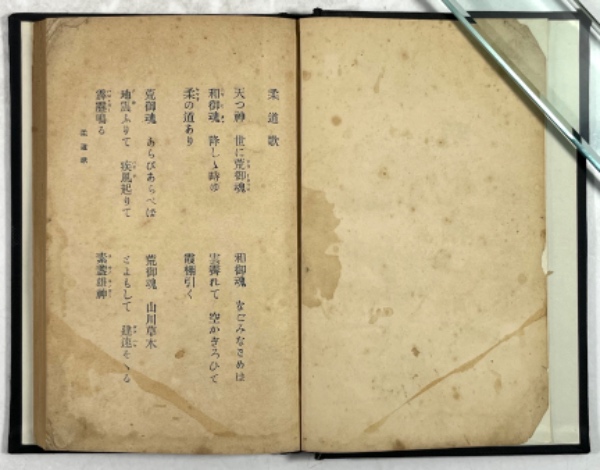 柔道歌
天つ神 世に荒御魂
和御魂 降しゝ時ゆ
柔の道あり
荒御魂 あらびあらべば
地震ふりて 疾風起りて
霹靂鳴る
和御魂 なごみなごめば
雲霽れて 空かぎろひて
霞棚引く
荒御魂 山川草木
とよもして 建速そゝる
素盞雄神
柔道歌